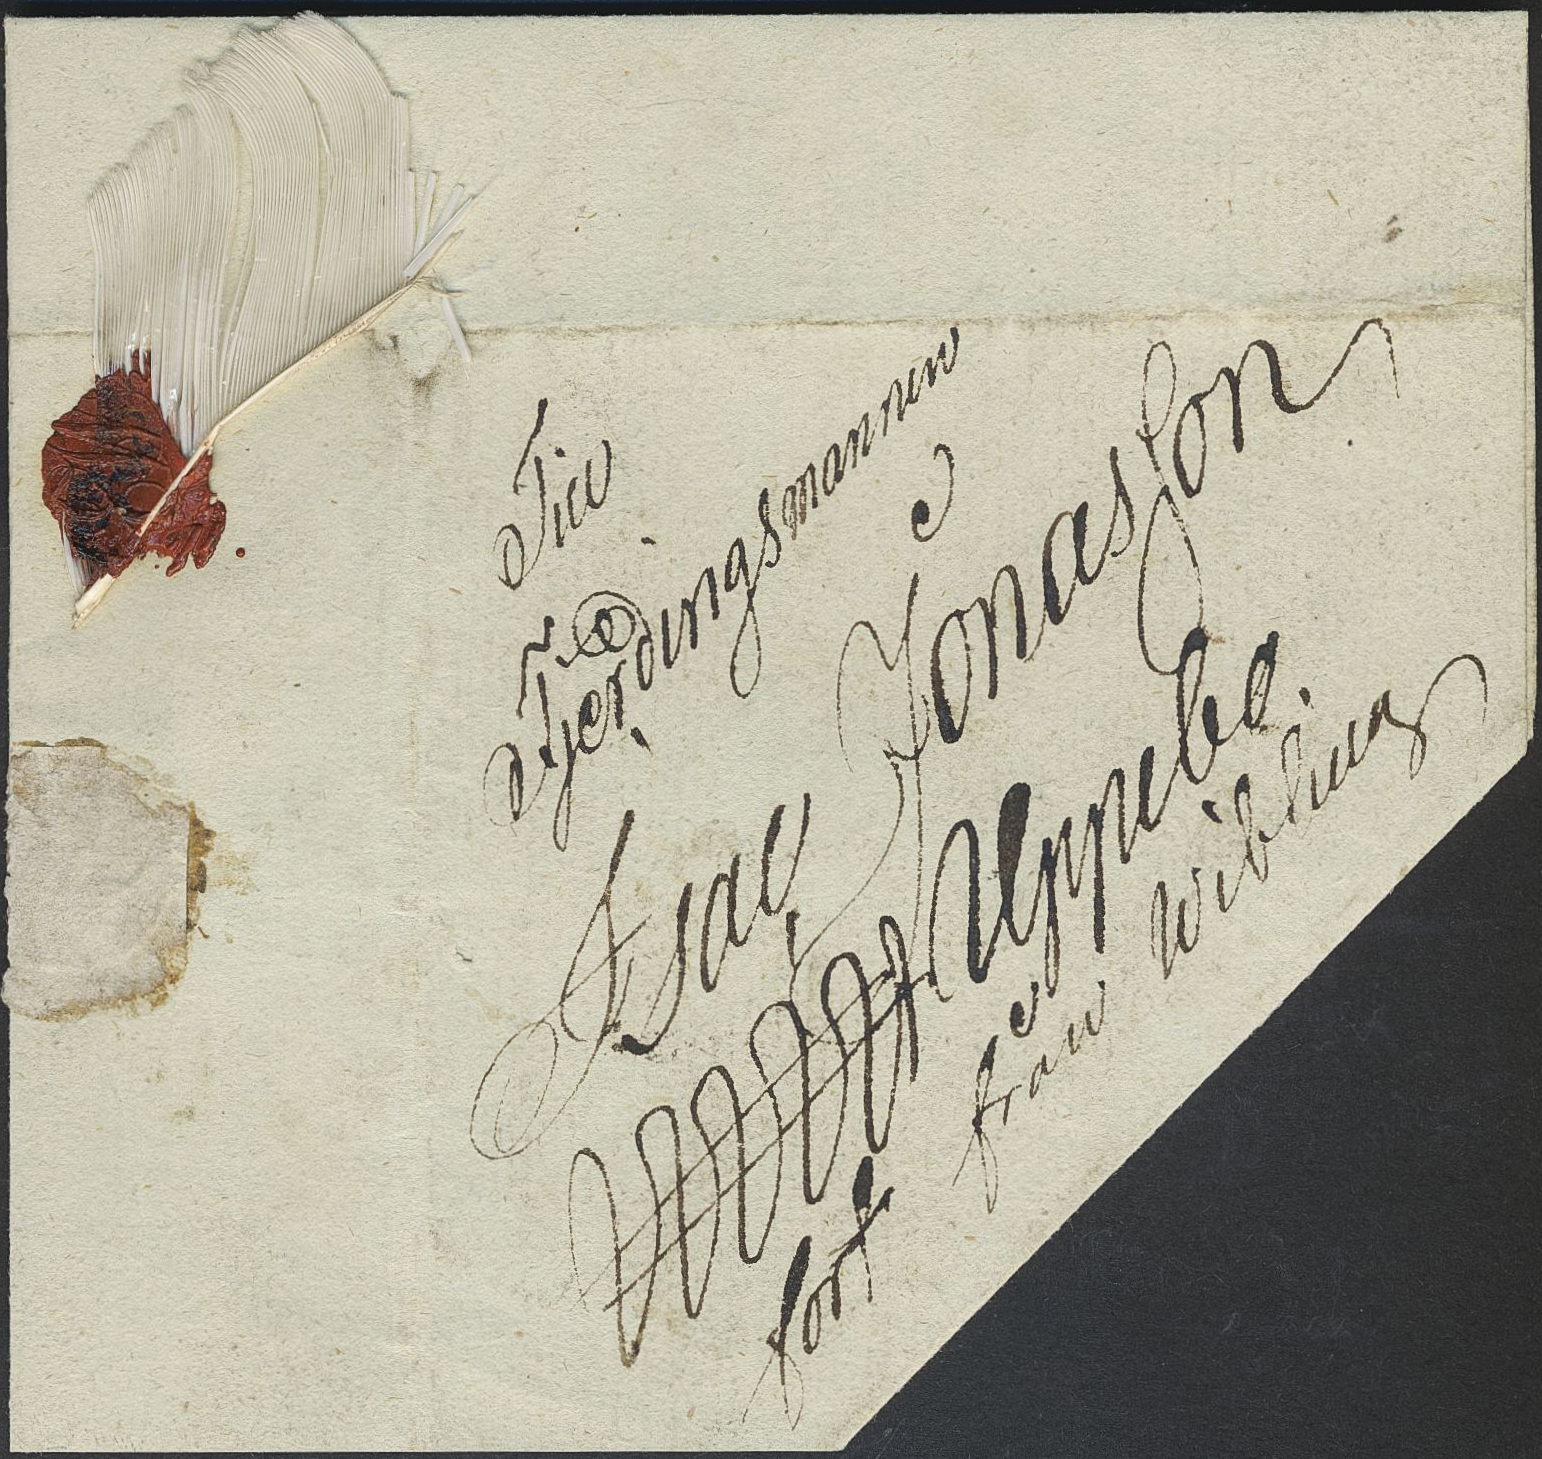 Till
Fjerdingsmannen
Isac Jonasson
Uppebo
fort från Wibhult